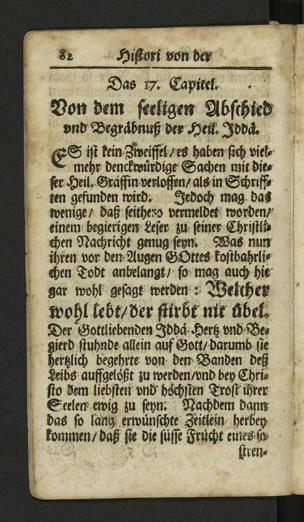 82 Histori von der
Das 17. Capitel.
Von dem seeligen Abschied
vnd Begräbnuß der Heil. Jddâ.
ES ist kein Zweiffel/ es haben sich viel-
mehr denckwürdige Sachen mit die-
ser Heil. Gräffin verloffen/ als in Schriff-
ten gefunden wird. Jedoch mag das
wenige/ daß seithero vermeldet worden/
einem begierigen Leser zu seiner Christli-
chen Nachricht genug seyn. Was nun
ihren vor den Augen GOttes kostbahrli-
chen Todt anbelangt/ so mag auch hie
gar wohl gesagt werden: Welcher
wohl lebt/ der stirbt nit übel.
Der Gottliebenden Jddâ Hertz vnd Be-
gierd stuhnde allein auf Gott/ darumb sie
hertzlich begehrte von den Banden deß
Leibs auffgelößt zu werden/ vnd bey Chri-
sto dem liebsten vnd höchsten Trost ihrer
Seelen ewig zu seyn. Nachdem dann
das so lang erwünschte Zeitlein herbey
kommen/ daß sie die süsse Frucht eines so
stren-